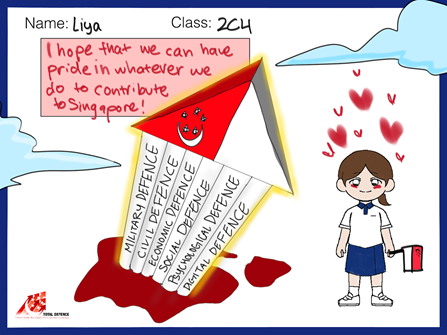 Name: Liya Class: 2C4
I hope that we can have
pride in whatever we
do to contribute
to Singapore!
MILITARY DEFENCE
CIVIL DEFENCE
ECONOMIC DEFENCE
SOCIAL DEFENCE
PSYCHOLOGICAL DEFENCE
DIGITAL DEFENCE
TOTAL DEFENCE